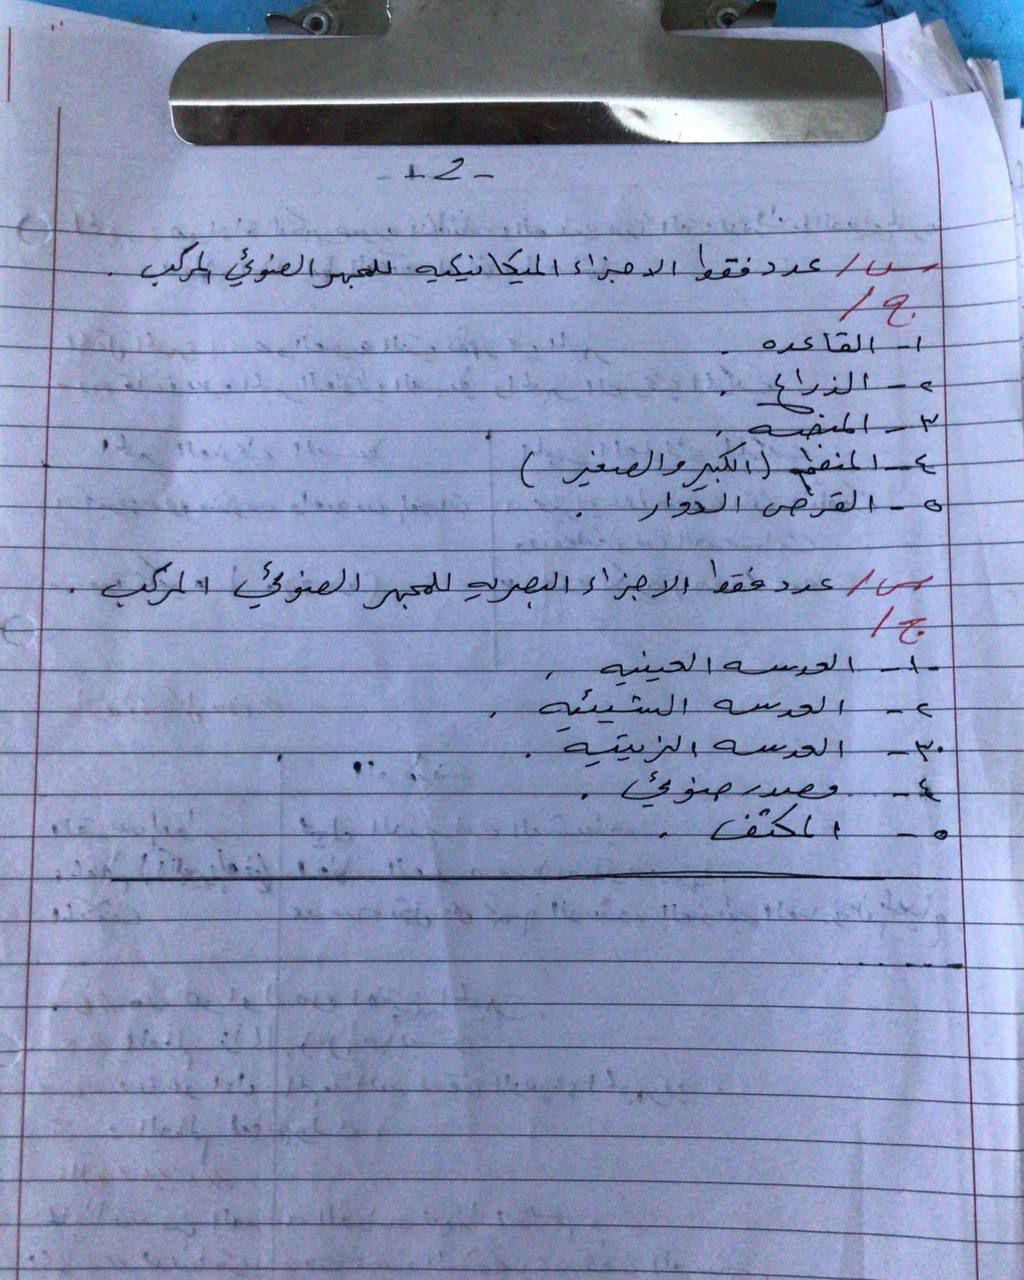 -12-
س/ عدد فقط الاجزاء الميكانيكيه للمجهر الضوئي المركب .
ج/
١- القاعده .
٢- الذراع .
٣- المنضه .
٤- المنظم (الكبير والصغير)
٥- القرص الدوار .
س/ عدد فقط الاجزاء البصريه للمجهر الضوئي المركب .
ج/
١- العدسه العينيه .
٢- العدسه الشيئيه .
٣- العدسه الزيتيه .
٤- مصدر ضوئي .
٥- المكثف .